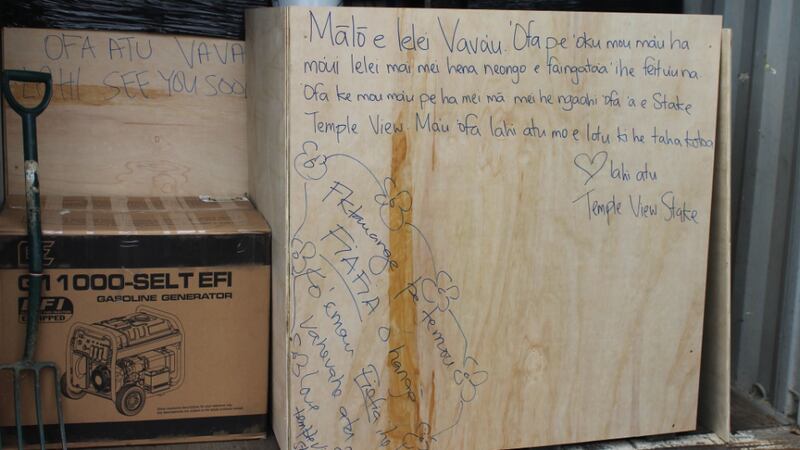 OFA ATU VAVA
LAHI SEE YOU SOON
Mālō e lelei Vava'u. 'Ofa pe 'oku mou ma'u ha
mo'ui lelei mai mei hena neongo e faingata'a 'ihe feitu'u na.
'Ofa ke mou ma'u pe ha mei mā mei he ngaahi 'ofa 'a e Stake
Temple View. Ma'u 'ofa lahi atu mo e lotu ki he taha kotoa
lahi atu
Temple View Stake
pe temou
FIAFIA o hange
Ko 'emau Fiafia he
vahevahe atu
Love
G11000-SELT EFI
GASOLINE GENERATOR
EFI
EQUIPPED